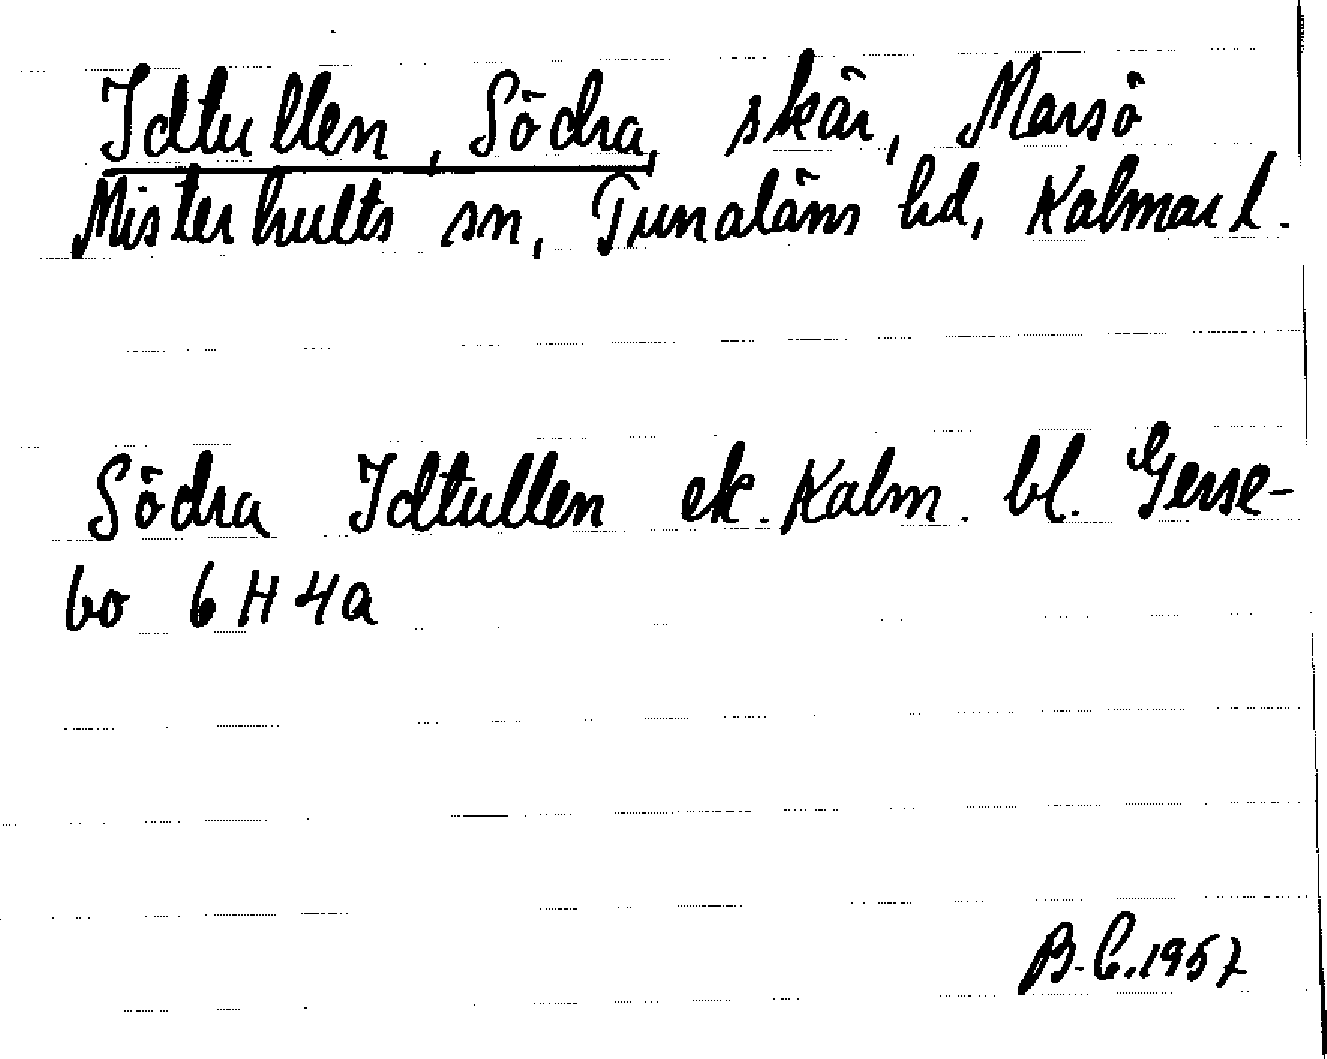 Idtullen, Södra, skär, Marsö
Misterhults sn, Tunaläns hd, Kalmar l.
Södra Idtullen ek. Kalm. bl. Gerse-
bo 6 H 4a
B.C. 1957